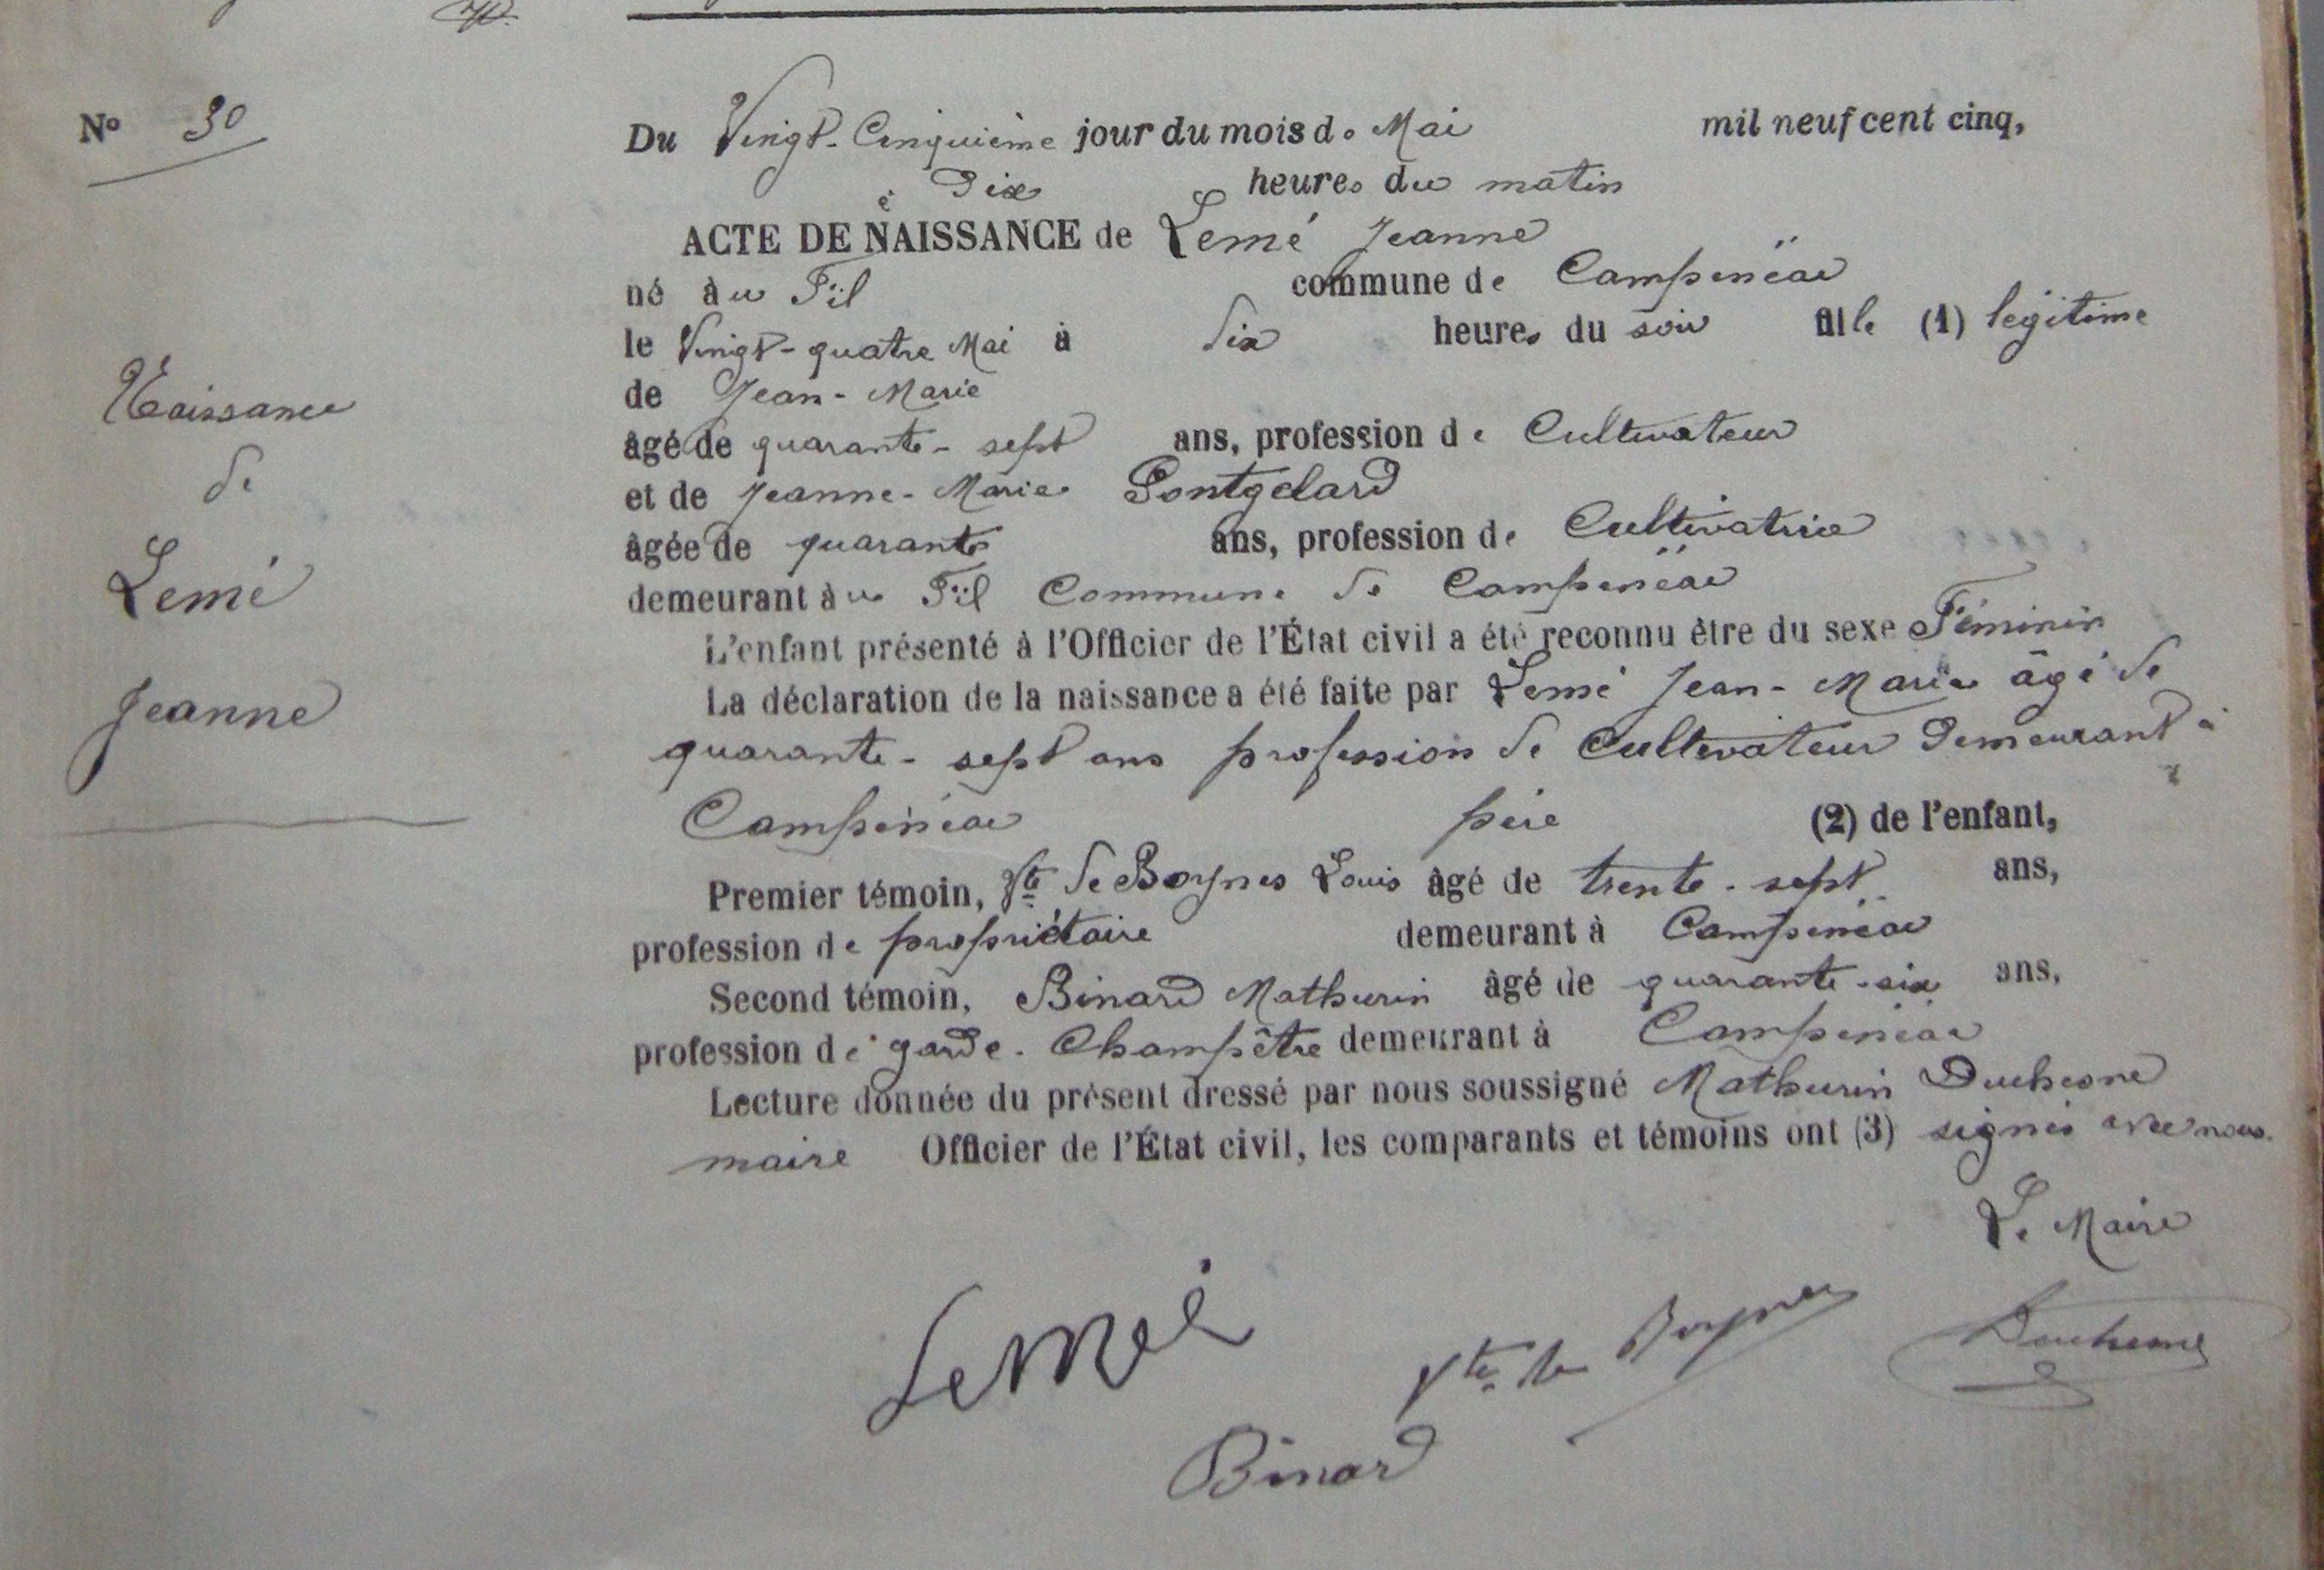 N° 30
Du Vingt-Cinquième jour du mois de Mai mil neuf cent cinq,
à Dix heures du matin
ACTE DE NAISSANCE de Lemé Jeanne
né à u Fil commune de Campénéac
le Vingt-quatre Mai à Six heures du soir fille (1) légitime
de Jean-Marie
âgé de quarante-sept ans, profession de Cultivateur
et de Jeanne-Marie Pontgelard
âgée de quarante ans, profession de Cultivatrice
demeurant à u Fil Commune de Campénéac
L'enfant présenté à l'Officier de l'État civil a été reconnu être du sexe Féminin
La déclaration de la naissance a été faite par Lemé Jean-Marie âgé de
quarante-sept ans profession de Cultivateur demeurant à
Campénéac père (2) de l'enfant,
Premier témoin, Vte de Boynes Louis âgé de trente-sept ans,
profession de propriétaire demeurant à Campénéac
Second témoin, Binard Mathurin âgé de quarante-six ans,
profession de garde-Champêtre demeurant à Campénéac
Lecture donnée du présent dressé par nous soussigné Mathurin Duchesne
maire Officier de l'État civil, les comparants et témoins ont (3) signés avec nous.
Naissance
de
Lemé
Jeanne
Le Maire
Lemé
Vte de Boynes
Duchesne
Binard